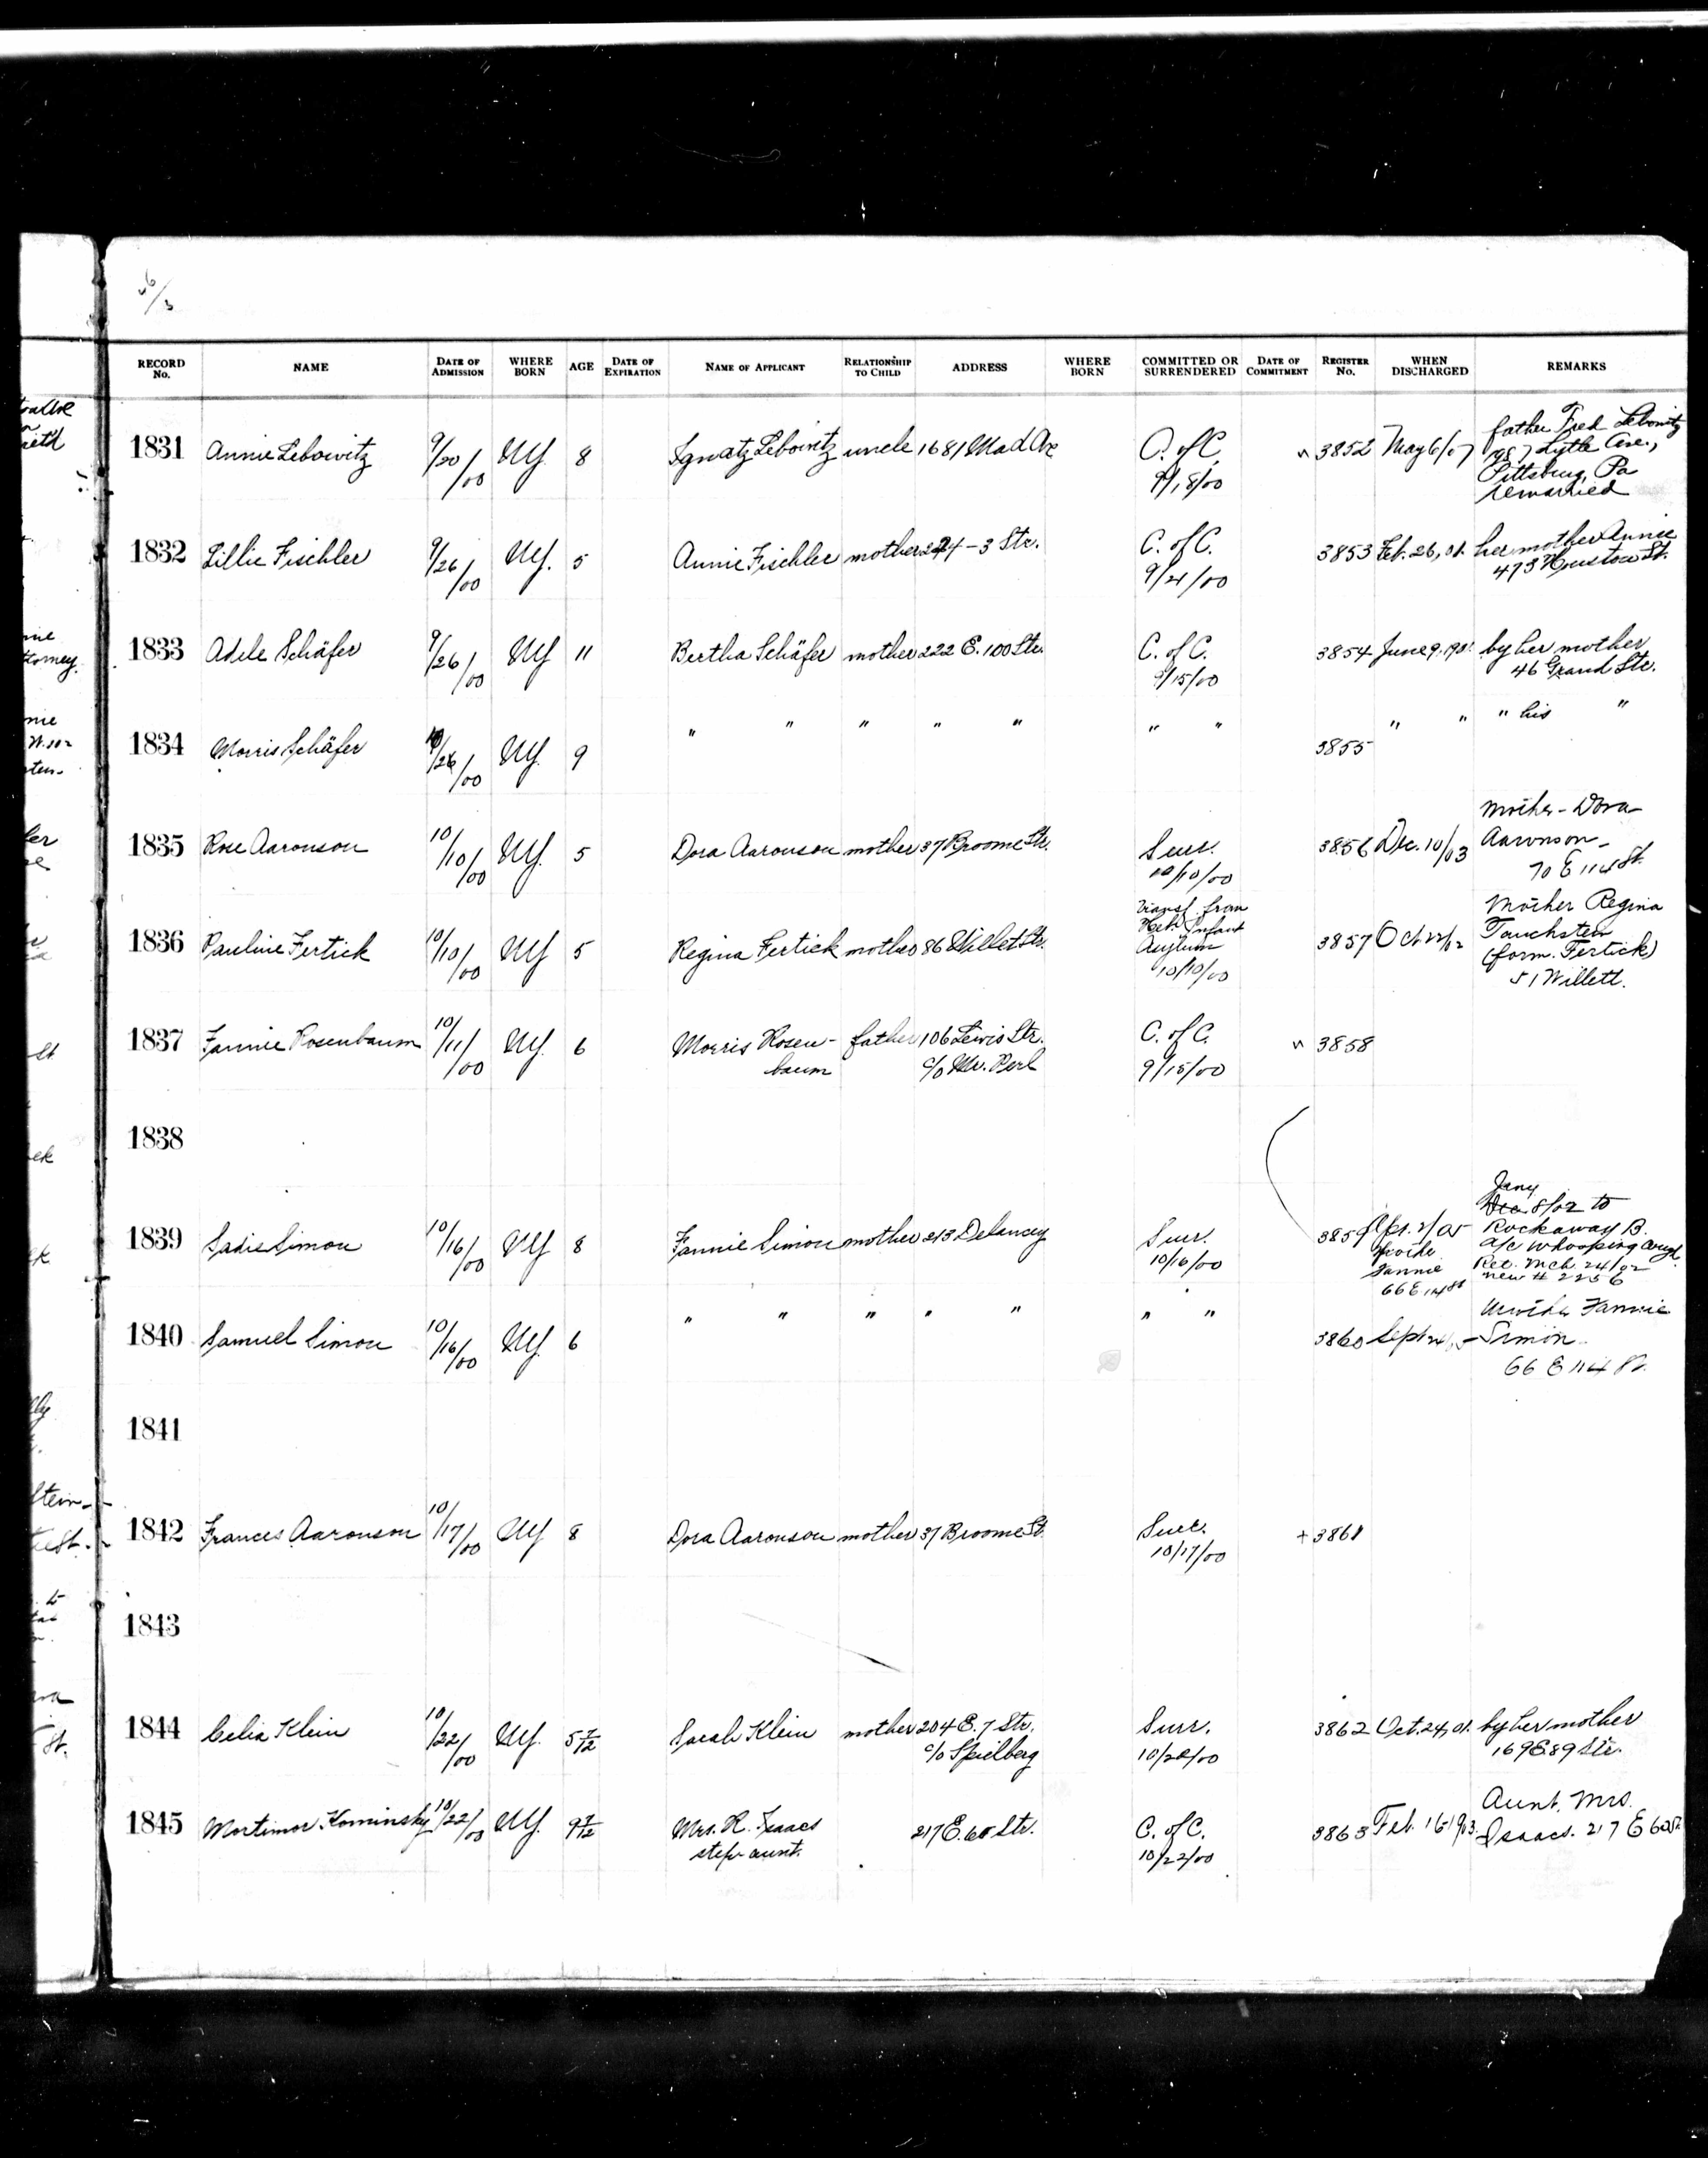 RECORD No. NAME DATE OF ADMISSION WHERE BORN AGE DATE OF EXPIRATION NAME OF APPLICANT RELATIONSHIP TO CHILD ADDRESS WHERE BORN COMMITTED OR SURRENDERED DATE OF COMMITMENT REGISTER No. WHEN DISCHARGED REMARKS
1831 Annie Lebowitz 9/20/00 NY 8 Ignatz Lebowitz uncle 1681 Mad Ave C. of C. 9/18/00 3852 May 6/07 father Fred Lebowitz
Lytle Ave.,
Pittsburg, Pa
remarried
1832 Lillie Fischler 9/26/00 NY. 5 Annie Fischler mother 244-3 Str. C. of C. 9/21/00 3853 Feb. 26, 01. her mother Annie
473 Houston St.
1833 Adele Schäfer 9/26/00 NY 11 Bertha Schäfer mother 222 E. 100 Str. C. of C. 9/15/00 3854 June 9. 1901. by her mother
46 Grand Str.
1834 Morris Schäfer 9/26/00 NY. 9 " " " " " " " 3855 " " " his "
1835 Rose Aaronson 10/10/00 NY. 5 Dora Aaronson mother 37 Broome Str. Surr. 10/10/00 3856 Dec. 10/03 Mother - Dora
Aaronson -
70 E 114 St.
1836 Pauline Fertick 10/10/00 NY 5 Regina Fertick mother 86 Willet Str. Transf. from
Heb. Infant
Asylum
10/10/00 3857 Oct 22/02 Mother Regina
Tauchstein
(form. Fertick)
51 Willett.
1837 Fannie Rosenbaum 10/11/00 NY. 6 Morris Rosen- father 106 Lewis Str. C. of C. 3858
baum c/o Mr. Perl 9/15/00
1838
1839 Sadie Simon 10/16/00 NY 8 Fannie Simon mother 213 Delancey Surr. 10/16/00 3859 Apr. 2/05
Mother
Fannie
66 E 114 St
Jany
Dec 8/02 to
Rockaway B.
a/c Whooping Cough.
Ret. Mch 24/02
new # 2256
1840 Samuel Simon 10/16/00 NY 6 " " " " " " " 3860 Sept 24/05 Mother Fannie
Simon
66 E 114 St.
1841
1842 Frances Aaronson 10/17/00 NY 8 Dora Aaronson mother 37 Broome St. Surr. 10/17/00 + 3861
1843
1844 Celia Klein 10/22/00 NY. 5 1/2 Sarah Klein mother 204 E. 7 Str. Surr. 3862 Oct. 24, 01. by her mother
c/o Spielberg 10/20/00 169 E 89 Str.
1845 Mortimor Kominsky 10/22/00 NY. 9 1/2 Mrs. R. Isaacs 217 E. 60 Str. C. of C. 3863 Feb. 16 1903. Aunt, Mrs.
step aunt. 10/22/00 Isaacs. 217 E 60 St